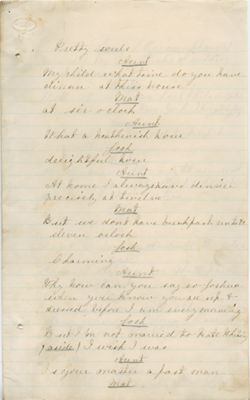 Pretty souls
Aunt
My child what time do you have
dinner at this house
Mat
at six o'clock
Aunt
What a heathenish hour
Josh
delightful hour
Aunt
At home I always have dinner
precisely at twelve
Mat
But we dont have breakfast until
eleven oclock
Josh
Charming
Aunt
Why how can you say so Joshua
when you know you are up &
dressed before I am every morning
Josh
But I'm not married to Kate
(aside) I wish I was
Aunt
Is your master a fast man
Mat